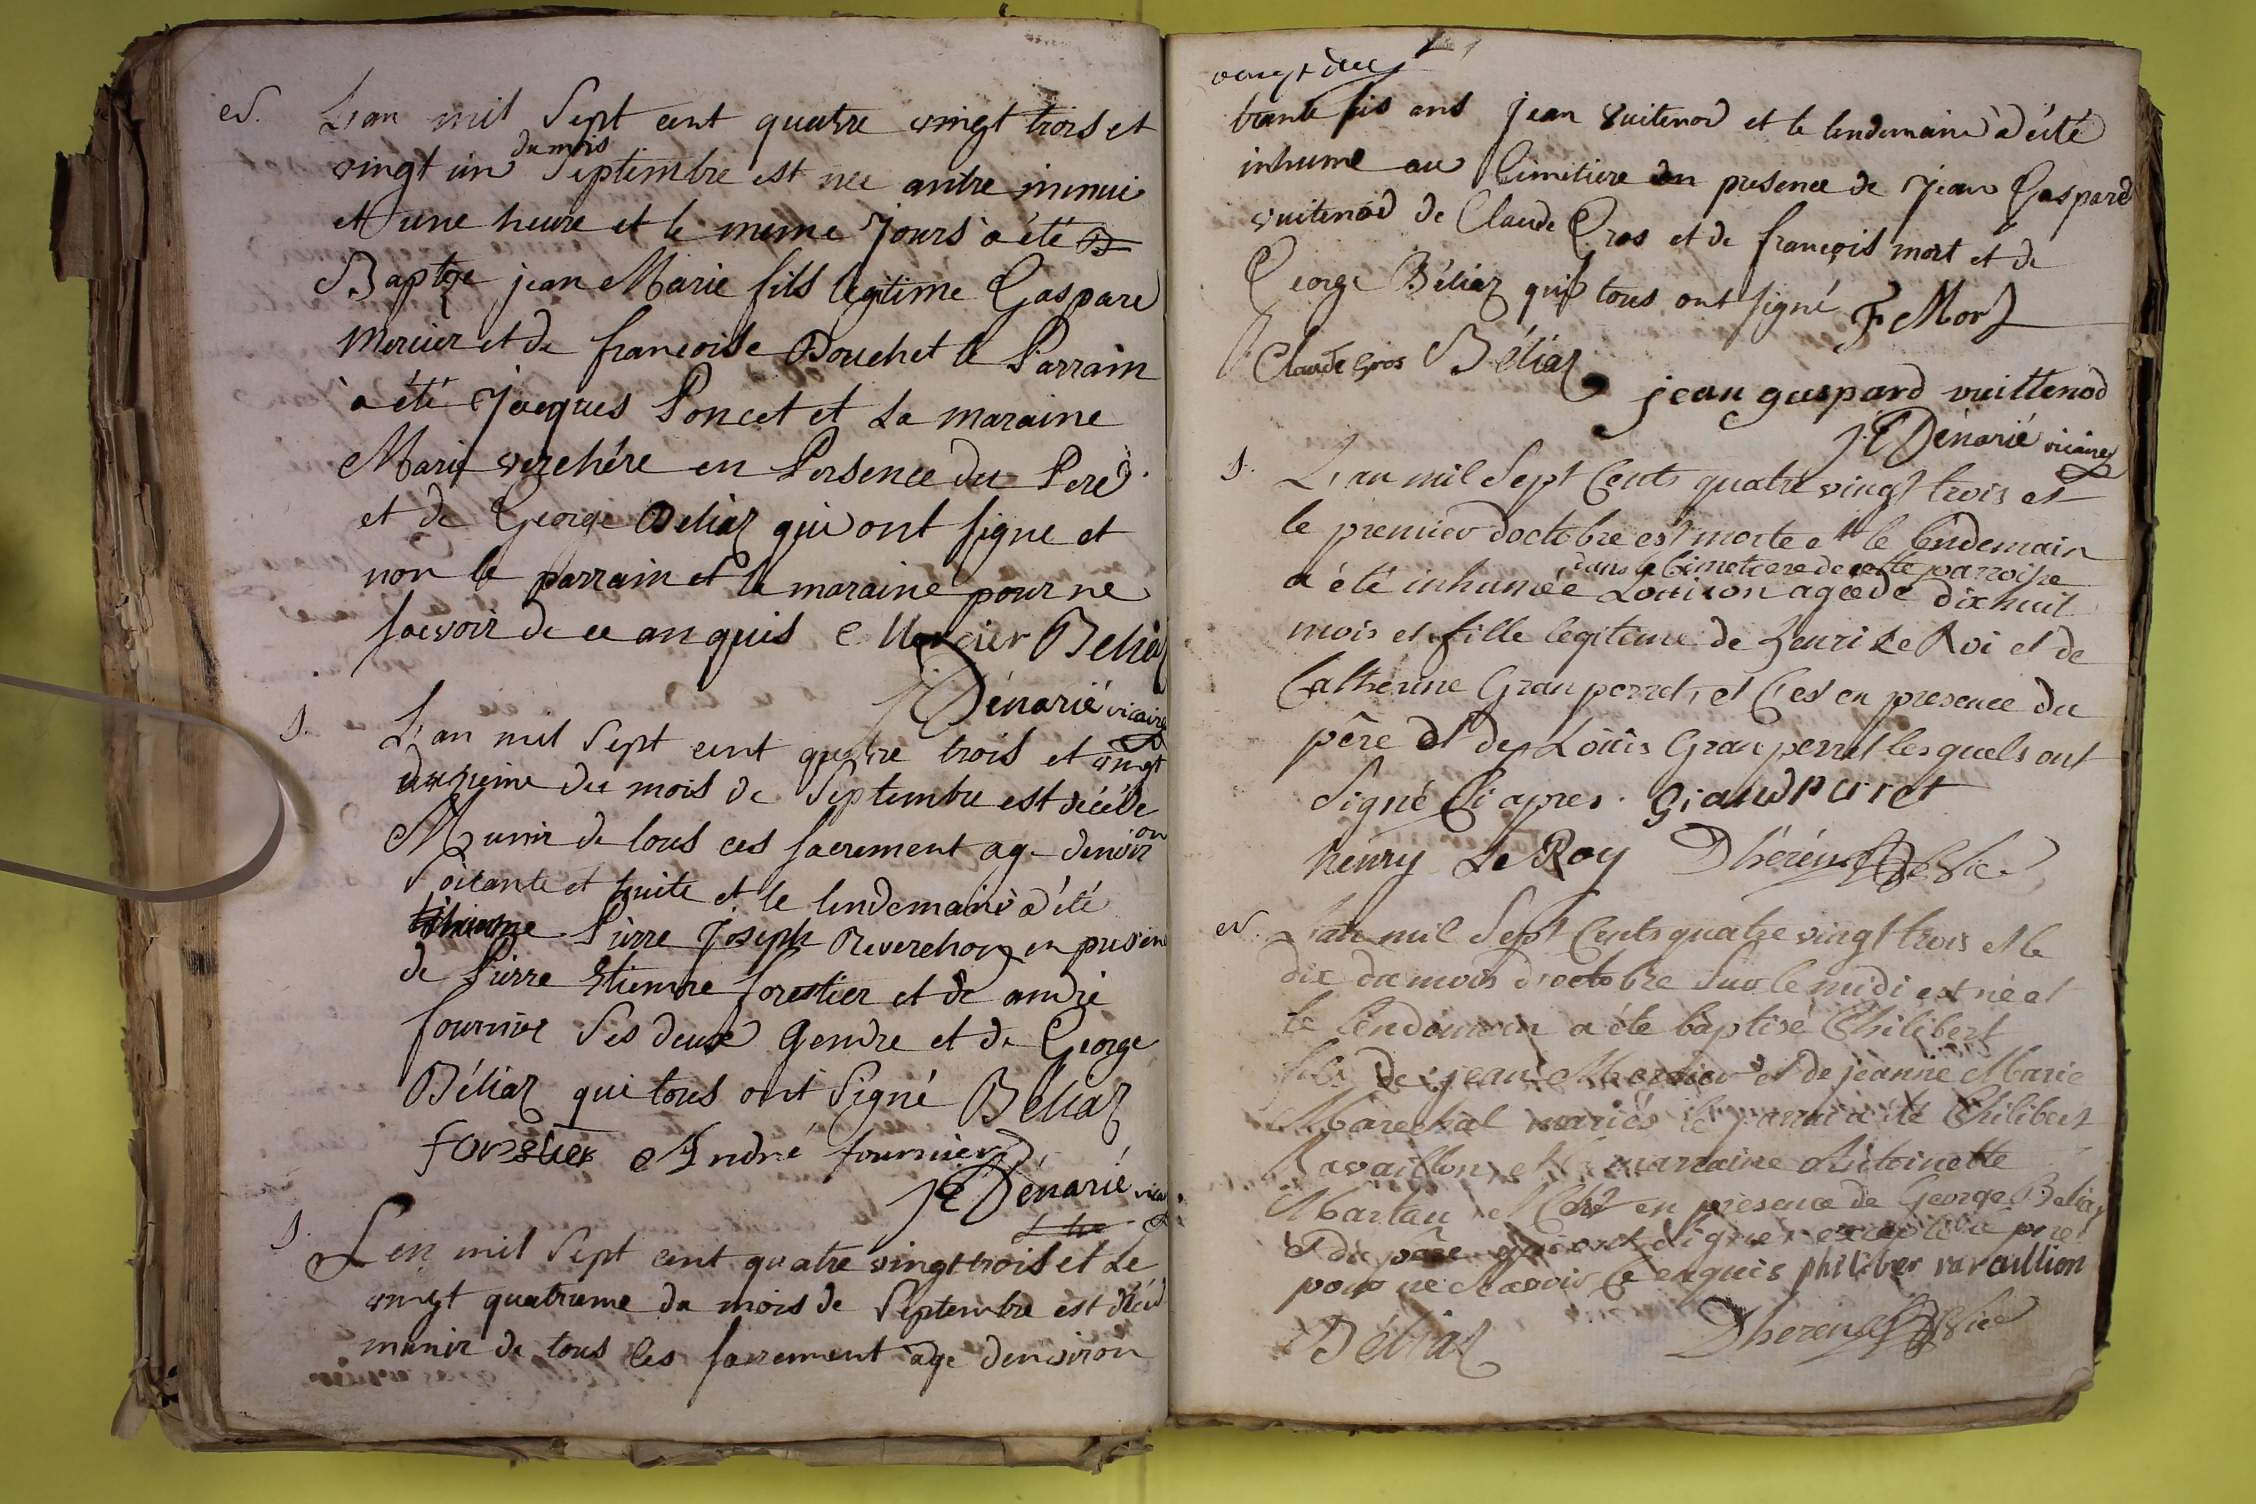 es.
L'an mil Sept cent quatre vingt trois et
vingt un du mois Septembre est nee antre minui
et une heure et le meme Jours à été
Baptge jean Marie fils legitime Gaspard
Mercier et de francoise Bouchet le Parrain
à été Jacques Poncet et La maraine
Marie verchére en Persence du Pere
et de George Beliaz qui ont signe et
non le parrain et la maraine pour ne
scavoir de ce anquis Mercier Beliaz
Dénarié vicaire
S.
L'an mil Sept cent quatre trois et vingt
deuxieme du mois de Septembre est décéde
Munir de tous ces sacrement age denviron
Soixante et huite et le lendemain à été
inhumé Pierre Joseph Reverchon en presence
de Pierre Etienne forestier et de andré
fournier Ses deux Gendre et de George
Béliaz qui tous ont Signé Béliaz
forestier André fournier
JC Dénarié vicaire
S.
L'en mil Sept cent quatre vingt trois et Le
vingt quatrieme du mois de Septembre est décéd
munir de tous les sacrement age denviron
vingt deux
trante sis ans jean vuitenod et le lendemain à été
inhume au Cimitiere en presence de Jean Gaspard
vuitenod de Claude Gros et de françois mort et de
George Béliaz qui tous ont signé F Mort
Claude Gros Béliaz
jean gaspard vuittenod
JC Dénarié vicaire
S.
L'an mil Sept Cents quatre vingt trois et
le premier doctobre est morte et le lendemain
dans le Cimetiere de cette parroisse
a été inhumée Louison agée de dix huit
mois et fille legitime de henri Le Roi et de
Catherine Granperret, et C'est en presence du
père et de Loüis Granperret lesquels ont
Signé Ci apres. Grandperret
henry Le Roy Dhérens Vic.
es.
L'an mil Sept Cents quatre vingt trois et le
dix du mois d'octobre Sur le midi est né et
le lendemain a été baptisé Philibert
fils de jean Mercier et de jeanne Marie
Marechal mariés le parrain a été Philibert
Ravaillon, et la marraine Antoinette
en presence de George Beliaz
et du père qui ont Signé excepté le père
pour ne Scavoir Ce enquis philiber ravaillion
Béliaz Dherens Vic